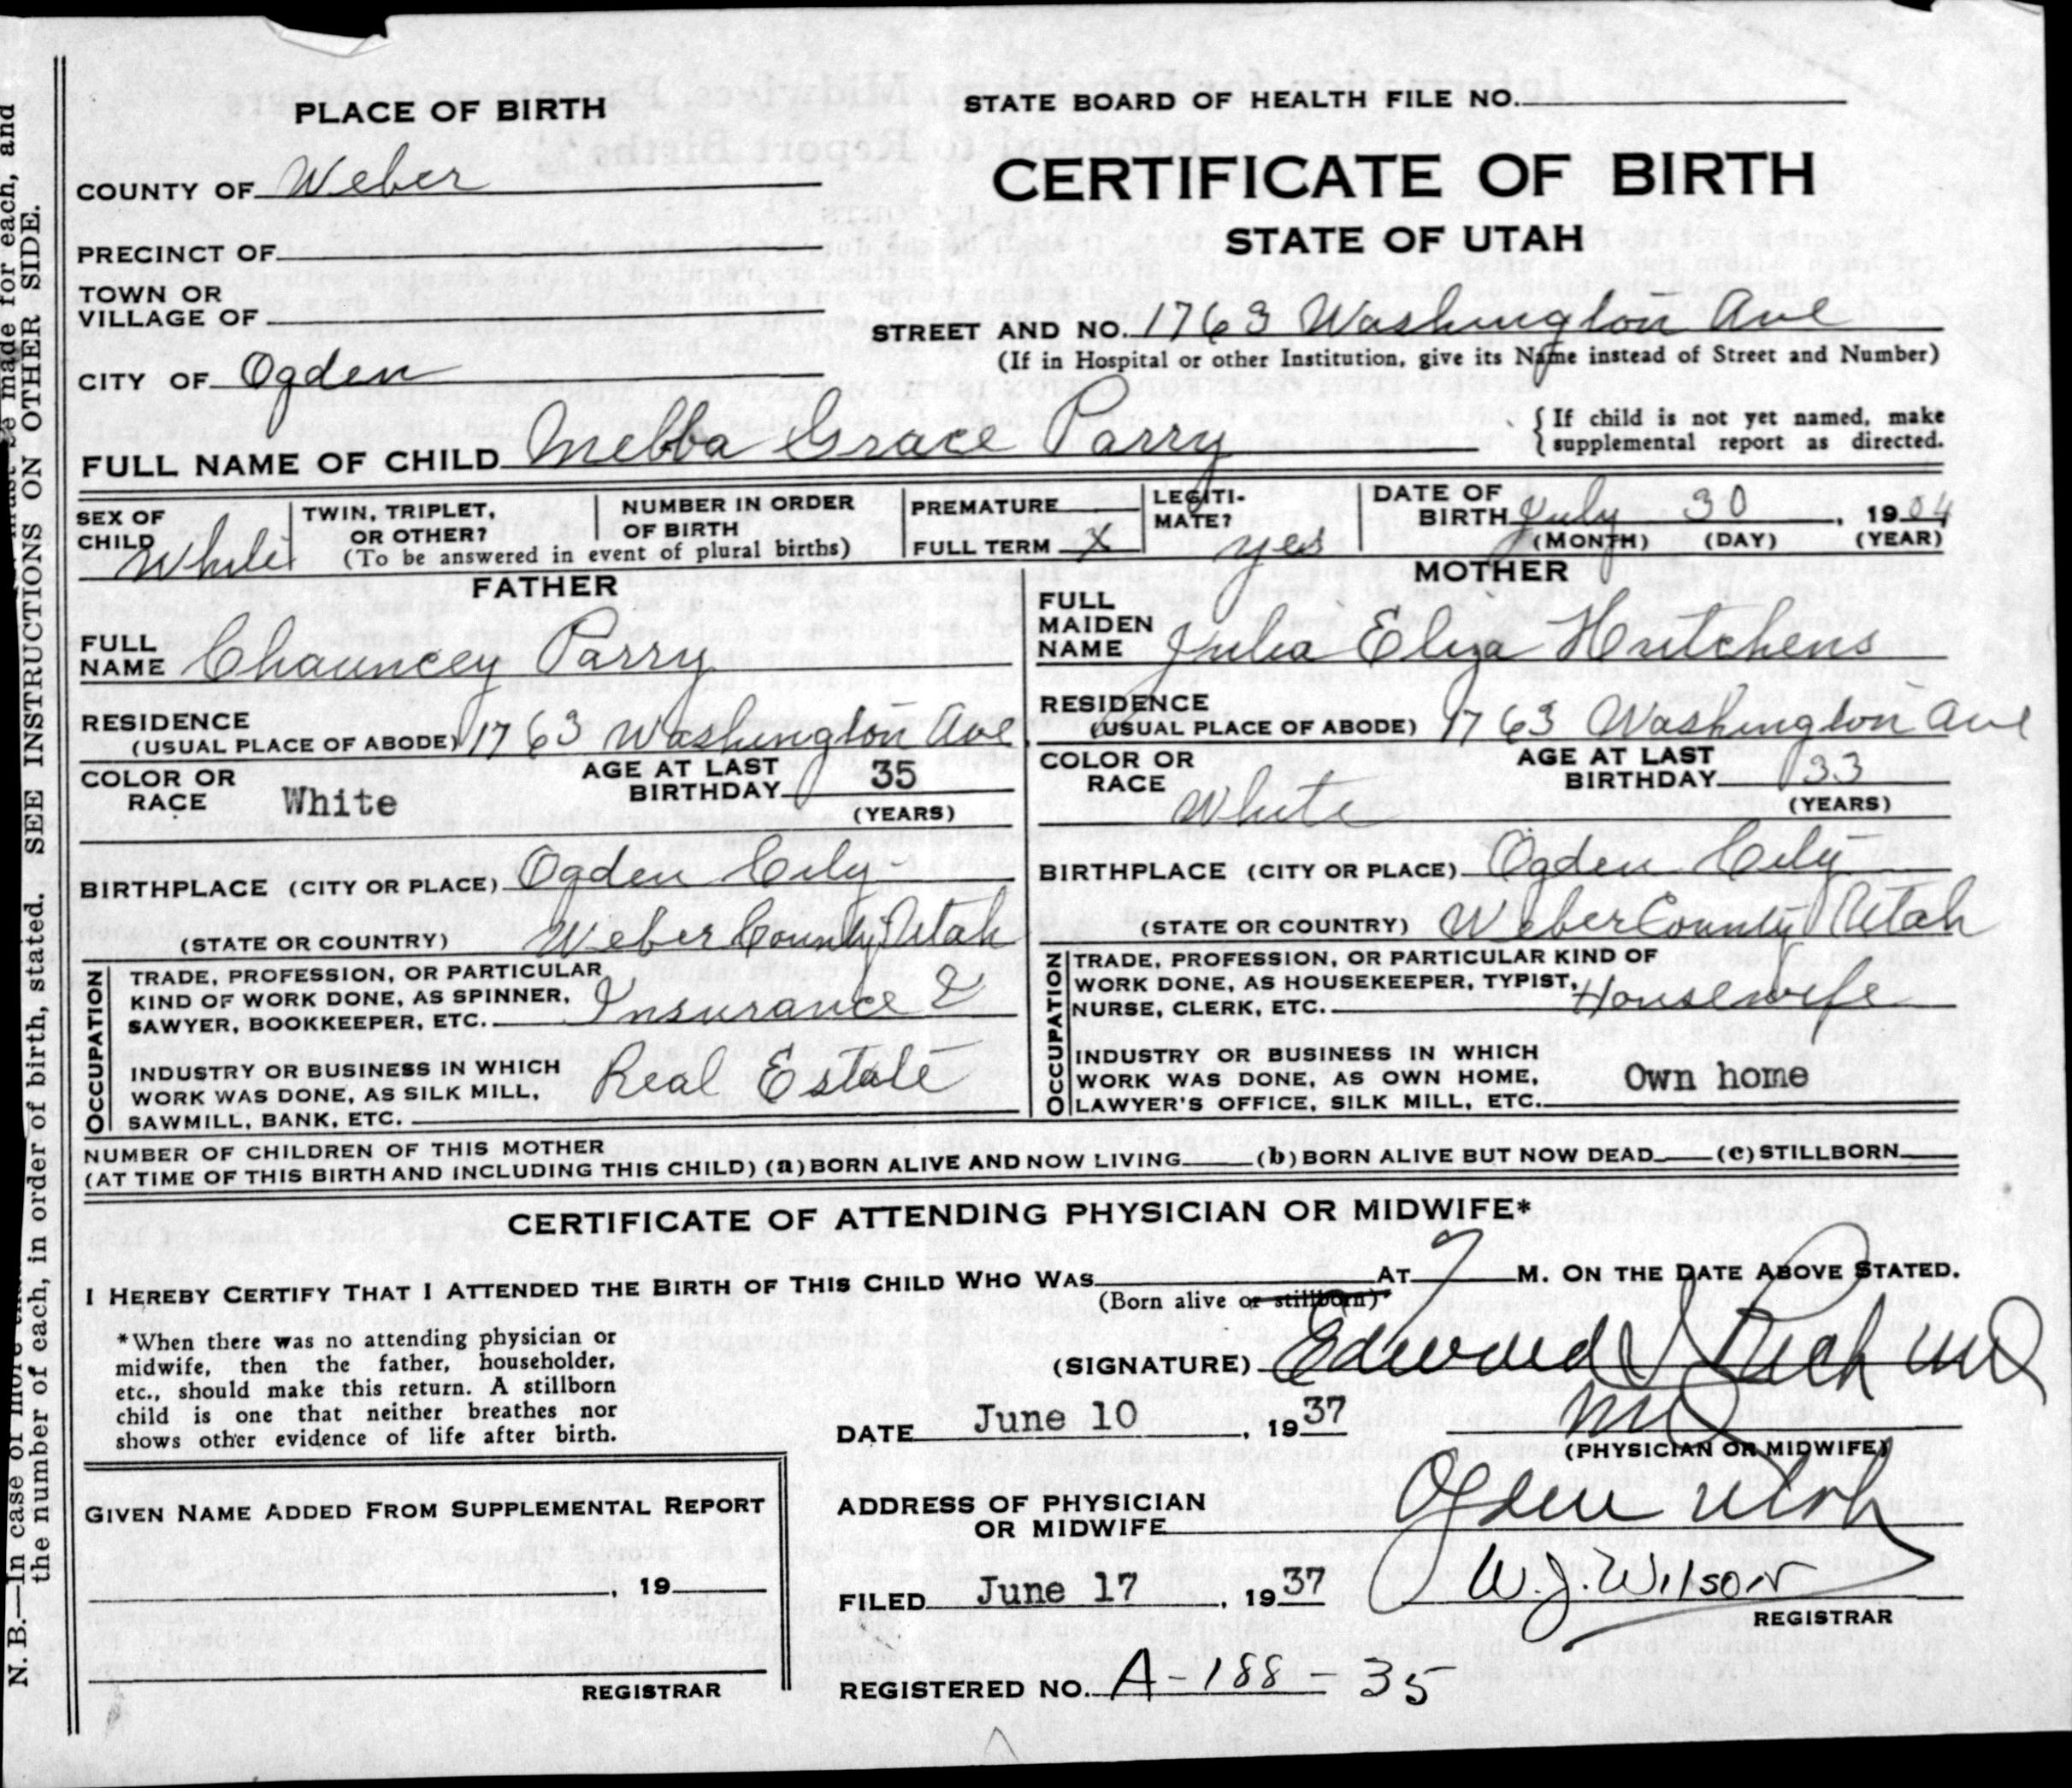 PLACE OF BIRTH
STATE BOARD OF HEALTH FILE NO.
COUNTY OF Weber
CERTIFICATE OF BIRTH
STATE OF UTAH
PRECINCT OF
TOWN OR
VILLAGE OF
STREET AND NO. 1763 Washington Ave
(If in Hospital or other Institution, give its Name instead of Street and Number)
CITY OF Ogden
FULL NAME OF CHILD Melba Grace Parry
{ If child is not yet named, make
{ supplemental report as directed.
SEX OF
CHILD White
TWIN, TRIPLET,
OR OTHER?
NUMBER IN ORDER
OF BIRTH
(To be answered in event of plural births)
PREMATURE
FULL TERM X
LEGITI-
MATE? yes
DATE OF
BIRTH July 30, 1904
(MONTH) (DAY) (YEAR)
FATHER
FULL
NAME Chauncey Parry
RESIDENCE
(USUAL PLACE OF ABODE) 1763 Washington Ave.
COLOR OR
RACE White
AGE AT LAST
BIRTHDAY 35
(YEARS)
BIRTHPLACE (CITY OR PLACE) Ogden City
(STATE OR COUNTRY) Weber County Utah
OCCUPATION
TRADE, PROFESSION, OR PARTICULAR
KIND OF WORK DONE, AS SPINNER,
SAWYER, BOOKKEEPER, ETC. Insurance &
INDUSTRY OR BUSINESS IN WHICH
WORK WAS DONE, AS SILK MILL,
SAWMILL, BANK, ETC. Real Estate
MOTHER
FULL
MAIDEN
NAME Julia Eliza Hutchens
RESIDENCE
(USUAL PLACE OF ABODE) 1763 Washington Ave
COLOR OR
RACE White
AGE AT LAST
BIRTHDAY 33
(YEARS)
BIRTHPLACE (CITY OR PLACE) Ogden City
(STATE OR COUNTRY) Weber County Utah
OCCUPATION
TRADE, PROFESSION, OR PARTICULAR KIND OF
WORK DONE, AS HOUSEKEEPER, TYPIST,
NURSE, CLERK, ETC. Housewife
INDUSTRY OR BUSINESS IN WHICH
WORK WAS DONE, AS OWN HOME,
LAWYER'S OFFICE, SILK MILL, ETC. Own home
NUMBER OF CHILDREN OF THIS MOTHER
(AT TIME OF THIS BIRTH AND INCLUDING THIS CHILD) (a) BORN ALIVE AND NOW LIVING (b) BORN ALIVE BUT NOW DEAD (c) STILLBORN
CERTIFICATE OF ATTENDING PHYSICIAN OR MIDWIFE*
I HEREBY CERTIFY THAT I ATTENDED THE BIRTH OF THIS CHILD WHO WAS AT M. ON THE DATE ABOVE STATED.
(Born alive or stillborn)
*When there was no attending physician or
midwife, then the father, householder,
etc., should make this return. A stillborn
child is one that neither breathes nor
shows other evidence of life after birth.
(SIGNATURE) Edward I Rich MD
DATE June 10, 1937 MD
(PHYSICIAN OR MIDWIFE)
GIVEN NAME ADDED FROM SUPPLEMENTAL REPORT
, 19
REGISTRAR
ADDRESS OF PHYSICIAN
OR MIDWIFE Ogden Utah
FILED June 17, 1937 W. J. Wilson
REGISTRAR
REGISTERED NO. A-188-35
made for each, and
SEE INSTRUCTIONS ON OTHER SIDE.
N. B.—In case of more
the number of each, in order of birth, stated.